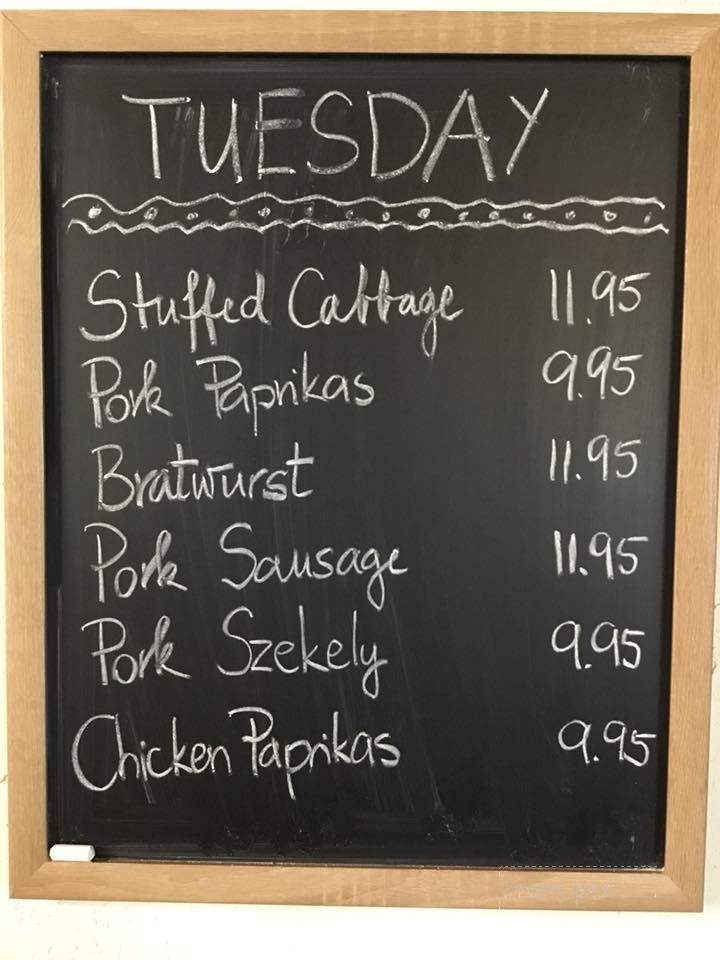 TUESDAY
Stuffed Cabbage 11.95
Pork Paprikas 9.95
Bratwurst 11.95
Pork Sausage 11.95
Pork Szekely 9.95
Chicken Paprikas 9.95